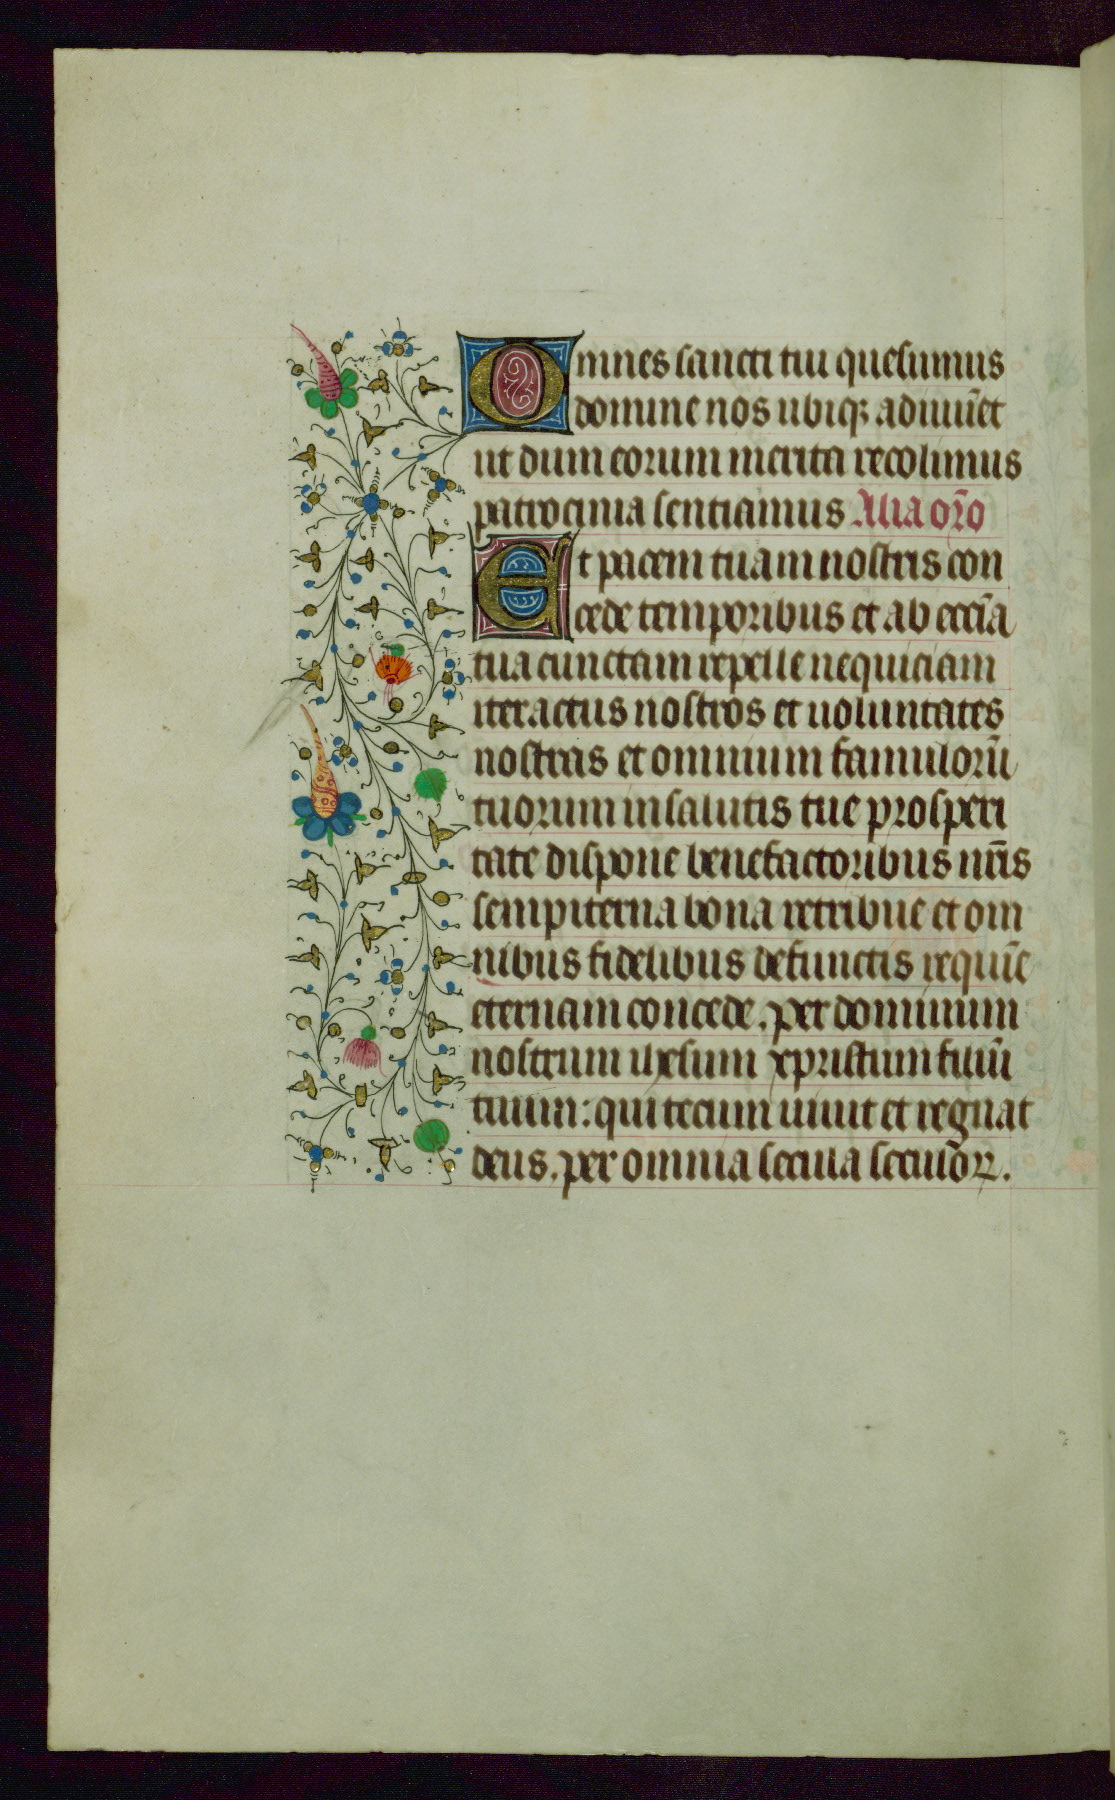 Omnes sancti tui quesumus
domine nos ubiqꝫ adiuuēt
ut dum eorum merita recolimus
patrocinia sentiamus Alia or̄o
Et pacem tuam nostris con
cede temporibus et ab ecc̄ia
tua cunctam repelle nequiciam
iter actus nostros et uoluntates
nostras et omnium famulorū
tuorum in salutis tue prosperi
tate dispone benefactoribus nr̄is
sempiterna bona retribue et om
nibus fidelibus defunctis requiē
eternam concede. per dominum
nostrum ihesum xpristum filiū
tuum: qui tecum uiuit et regnat
deus. per omnia secula seculōꝝ.